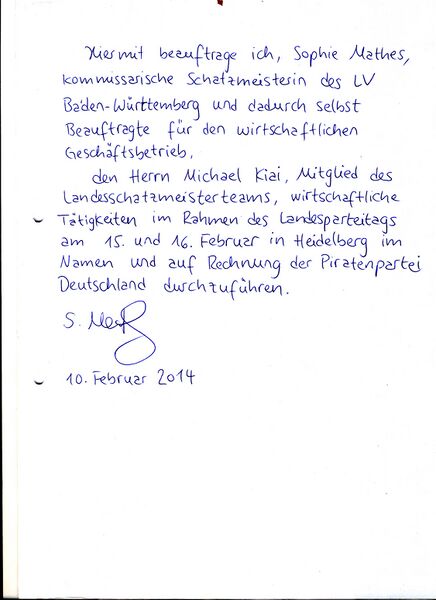 Hiermit beauftrage ich, Sophie Mathes,
kommissarische Schatzmeisterin des LV
Baden-Württemberg und dadurch selbst
Beauftragte für den wirtschaftlichen
Geschäftsbetrieb,
den Herrn Michael Kiai, Mitglied des
Landesschatzmeisterteams, wirtschaftliche
Tätigkeiten im Rahmen des Landesparteitags
am 15. und 16. Februar in Heidelberg im
Namen und auf Rechnung der Piratenpartei
Deutschland durchzuführen.
S.
10. Februar 2014